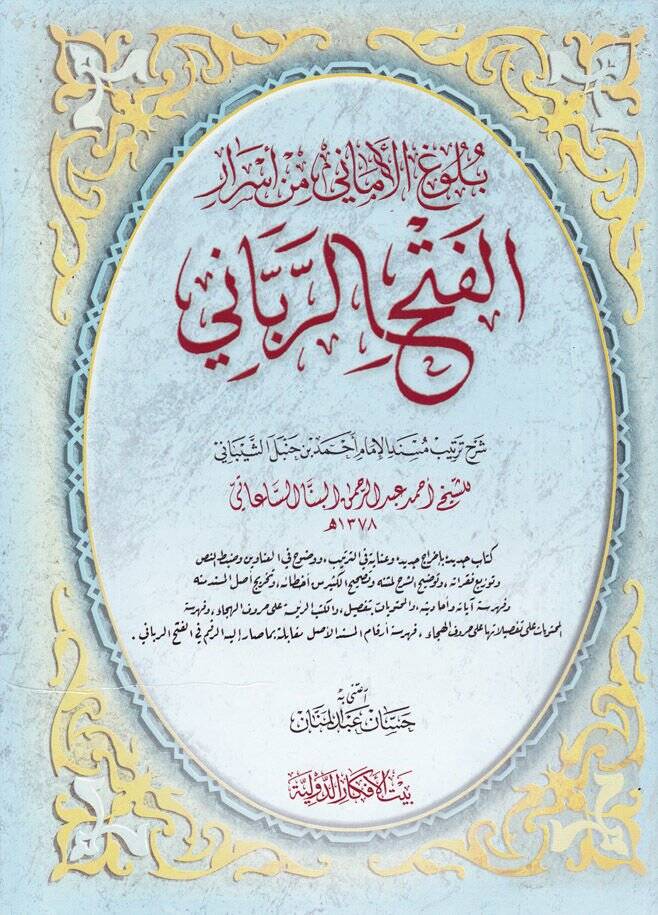 بُلُوغ الأَمَاني مِنْ أَسْرَارِ
الفَتْحِ الرَّبَّانِي
شَرْح تَرتِيب مُسْنَدِ الإِمَام أَحْمَد بْن حَنْبَل الشَّيْبَانِيّ
للشيخ أحمد عبد الرحمن البنا الساعاتي
١٣٧٨هـ
كتاب جديد بإخراج جديد وعناية في الترتيب، ووضوح في العناوين وضبط للنص
وتوزيع فقراته، وتوضيح الشرح لمتنه وتصحيح الكثير من أخطائه، وتخريج أصل المسند منه
وفهرسة آياته وأحاديثه، والمحتويات بتفصيل، والكتب الرئيسة على حروف الهجاء، وفهرسة
المحتويات على تفصيلاتها على حروف الهجاء، فهرسة أرقام المسند الأصل مقابلة بما صار إليه الرقم في الفتح الرباني.
اعتنى به
حسان عبد المنان
بيت الأفكار الدولية